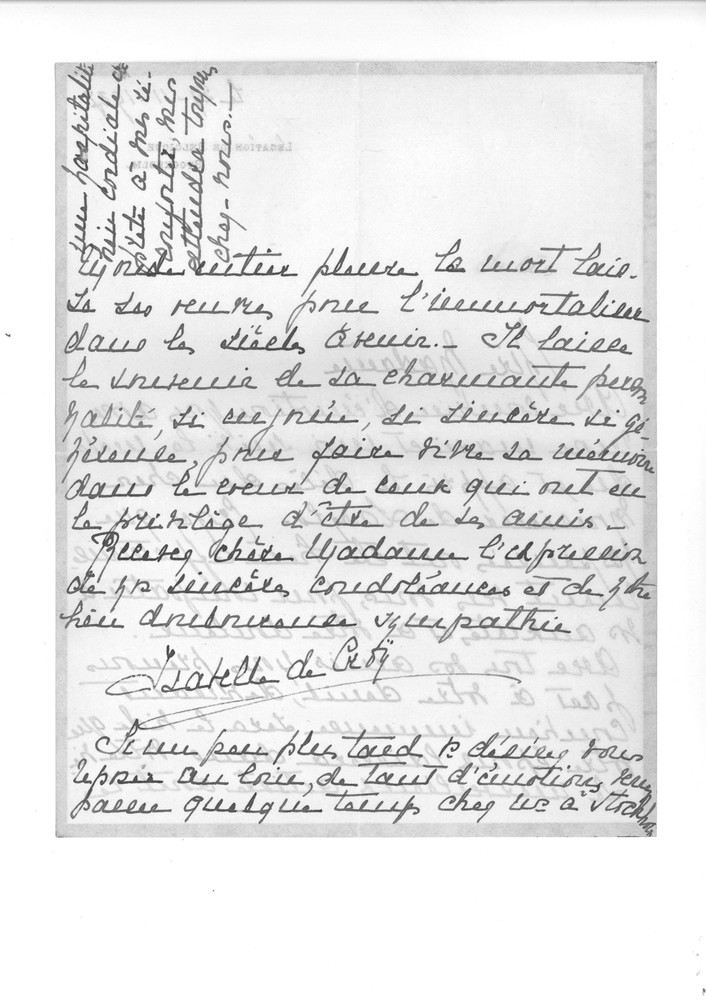 Monde entier pleure la mort lais-
se ses œuvres pour l'immortaliser
dans les siècles à venir. - Il laisse
le souvenir de sa charmante person
nalité, si enjouée, si sincère si gé-
néreuse, pour faire vivre sa mémoire
dans le cœur de ceux qui ont eu
le privilège d'être de ses amis -
Recevez chère Madame l'expression
de ns sincères condoléances et de notre
bien douloureuse sympathie
Isabelle de Croÿ
Si un peu plus tard vs désirez vous
reposer au loin, de tant d'émotions, venez
passer quelque temps chez ns à Stockholm
une hospitalité
bien cordiale et
à ns ré-
confortez, ms
attendra toujours
chez-nous. -
LÉGATION DE BELGIQUE
STOCKHOLM